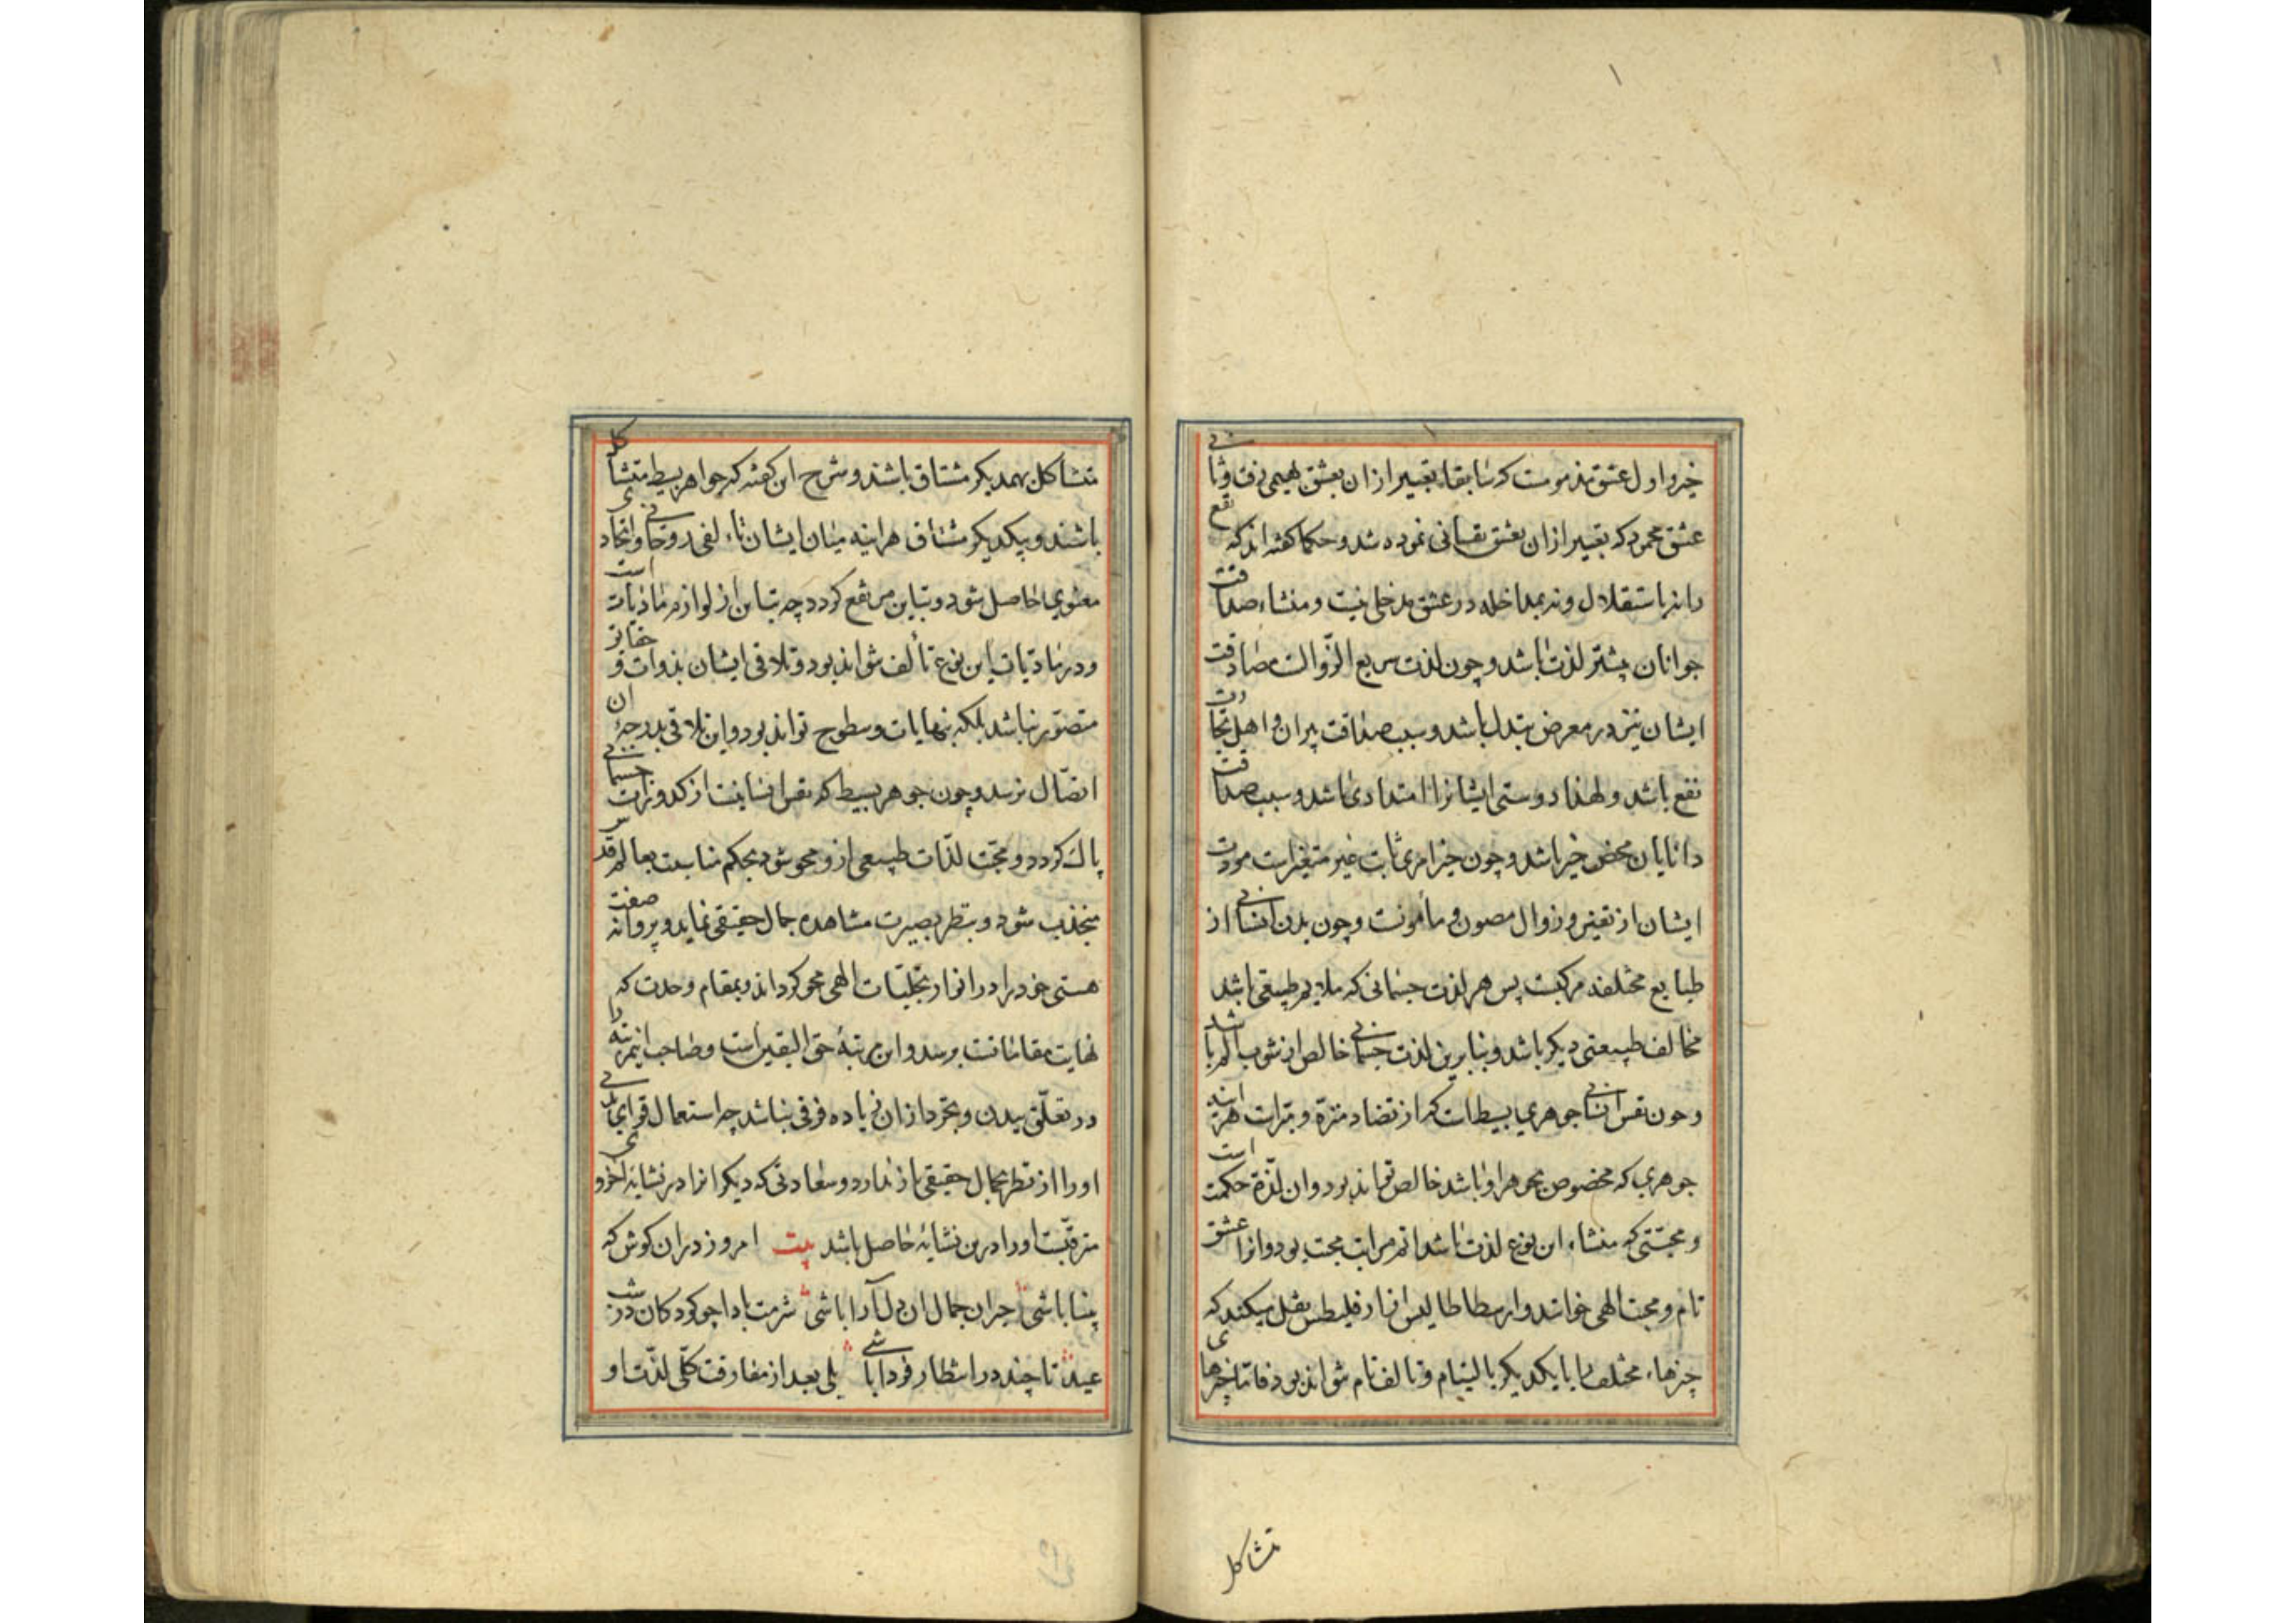 خیر و اول عشق مذمومست که سابقاء تعبیر ازان بعشق بهیمی رفت و ثانی
عشق محمود که تعبیر ازان بعشق نفسانی نموده شد و حکما گفته اند که نفع
را نه باستقلال و نه بمداخله در عشق مدخلی نیست و منشاء صداقت
جوانان بیشتر لذت باشد و چون لذت سریع الزّوالست مصادقت
ایشان نیز در معرض تبدل باشد و سبب صداقت پیران و اهل تجارت
نفع باشد و لهذا دوستی ایشانرا امتدادی باشد و سبب صداقت
دانایان محض خیر باشد و چون خیر امری ثابت غیر متغیرست مودت
ایشان از تغیر و زوال مصون و مأمونست و چون بدن انسانی از
طبایع مختلفه مرکبست پس هر لذت جسمانی که ملایم طبیعتی باشد
مخالف طبیعتی دیگر باشد و بنابرین لذت جسمانی خالص از شوب الم نباشد
و چون نفس انسانی جوهری بسیط است که از تضاد منزه و مبراست هرآینه
جوهری که مخصوص بجوهر او باشد خالص تواند بود و ان لذّة حکمتست
و محبّتی که منشاء این نوع لذت باشد اتم مراتب محبت بود و انرا عشق
تام و محبت الهی خوانند و ارسطاطالیس از ارقلیطس نقل میکند که
چیزهاء مختلف را با یکدیگر بالتیام و تالف تام نتواند بود فاما چیزهای
تشاکل
متشاکل بهمدیگر مشتاق باشند و شرح این گفته که جواهر بسیط متشاکل
باشند و بیکدیگر مشتاق هراینه میان ایشان تاءلفی روحانی و اتحادی
معنوی حاصل شود و تباین مرتفع گردد چه تباین از لوازم مادیاتست
و در مادیات این نوع تألف نتواند بود و تلاقی ایشان بذوات و حقایق
متصوّر نباشد بلکه بنهایات و سطوح تواند بود و این تلاقی بدرجهٔ ان
اتصّال نرسد و چون جوهر بسیط که نفس انسانیست از کدورات جسمانی
پاک گردد و محبّت لذّات طبیعی ازو محو شود بحکم مناسبت بعالم قدس
منجذب شود و بنظر بصیرت مشاهده جمال حقیقی نماید و پروانه صفت
هستی خود را در انوار تجلّیات الهی محو گرداند و بمقام وحدت که
نهایت مقاماتست برسد و این مرتبهٔ حق الیقین است و صاحب این مرتبه را
در تعلّق ببدن و تجرد ازان زیاده فرقی نباشد چه استعمال قوای بدنی
او را از نظر بجمال حقیقی باز ندارد و سعادتی که دیگرانرا در نشاىه اخروی
مترقّبست او را درین نشاىٔه حاصل باشد بیت امروز دران کوش که
بینا باشی حیران جمال ان دلآرا باشی شرمت بادا چو کودکان در شب
عید تا چند در انتظار فردا باشی بلی بعد از مفارقت کلّی لذّت او